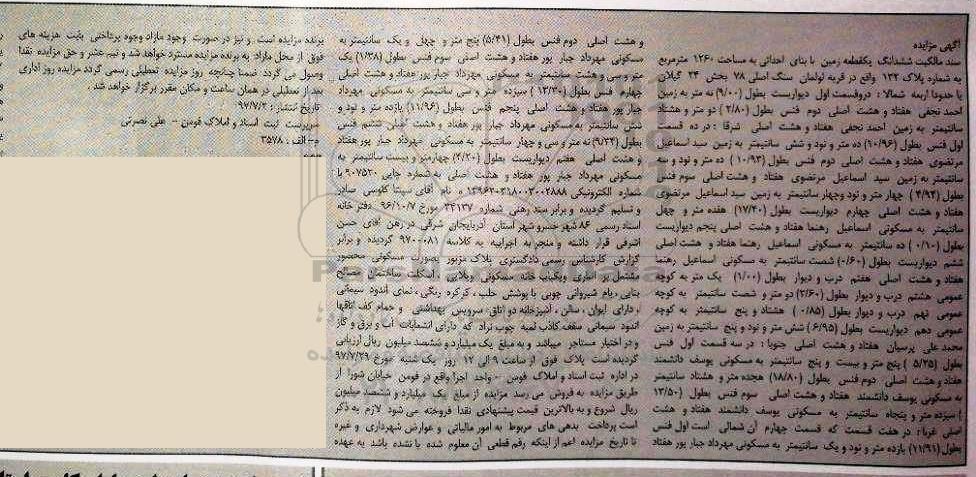 آگهی مزایده
سند مالکیت ششدانگ یکقطعه زمین با بنای احداثی به مساحت ۱۲۶۰ مترمربع
به شماره پلاک ۱۳۴ واقع در قریه لولمان سنگ اصلی ۷۸ بخش ۲۴ گیلان
با حدودا اربعه شمالا : دروقسمت اول دیواریست بطول (۹/۰۰) نه متر به زمین
احمد نجفی هفتاد و هشت اصلی دوم فنس بطول (۲/۸۰) دو متر و هشتاد
سانتیمتر به زمین احمد نجفی هفتاد و هشت اصلی شرقا : در ده قسمت
اول فنس بطول (۱۰/۹۶) ده متر و نود و شش سانتیمتر به زمین سید اسماعیل
مرتضوی هفتاد و هشت اصلی دوم فنس بطول (۱۰/۹۳) ده متر و نود و سه
سانتیمتر به زمین سید اسماعیل مرتضوی هفتاد و هشت اصلی سوم فنس
بطول (۴/۹۴) چهار متر و نود وچهار سانتیمتر به زمین سید اسماعیل مرتضوی
هفتاد و هشت اصلی چهارم دیواریست بطول (۱۷/۴۰) هفده متر و چهل
سانتیمتر به مسکونی اسماعیل رهنما هفتاد و هشت اصلی پنجم دیواریست
بطول (۰/۱۰) ده سانتیمتر به مسکونی اسماعیل رهنما هفتاد و هشت اصلی
ششم دیواریست بطول (۰/۶۰) شصت سانتیمتر به مسکونی اسماعیل رهنما
هفتاد و هشت اصلی هفتم درب و دیوار بطول (۱/۰۰) یک متر به کوچه
عمومی هشتم درب و دیوار بطول (۲/۶۰) دو متر و شصت سانتیمتر به کوچه
عمومی نهم درب و دیوار بطول (۰/۸۵) هشتاد و پنج سانتیمتر به کوچه
عمومی دهم دیواریست بطول (۶/۹۵) شش متر و نود و پنج سانتیمتر به زمین
محمد علی پرسیان هفتاد و هشت اصلی جنوبا : در سه قسمت اول فنس
بطول (۵/۲۵) پنج متر و بیست و پنج سانتیمتر به مسکونی یوسف دانشمند
هفتاد و هشت اصلی دوم فنس بطول (۱۸/۸۰) هجده متر و هشتاد سانتیمتر
به مسکونی یوسف دانشمند هفتاد و هشت اصلی سوم فنس بطول (۱۳/۵۰
) سیزده متر و پنجاه سانتیمتر به مسکونی یوسف دانشمند هفتاد و هشت
اصلی غربا : در هفت قسمت که قسمت چهارم آن شمالی است اول فنس
بطول (۱۱/۹۱) یازده متر و نود و یک سانتیمتر به مسکونی مهرداد جبار پور هفتاد
و هشت اصلی دوم فنس بطول (۵/۴۱) پنج متر و چهل و یک سانتیمتر به
مسکونی مهرداد جبار پور هفتاد و هشت اصلی سوم فنس بطول (۱/۳۸) یک
متر و سی و هشت سانتیمتر به مسکونی مهرداد جبار پور هفتاد و هشت اصلی
چهارم فنس بطول (۱۳/۳۰) سیزده متر و سی سانتیمتر به مسکونی مهرداد
جبار پور هفتاد و هشت اصلی پنجم فنس بطول (۱۱/۹۶) یازده متر و نود و
شش سانتیمتر به مسکونی مهرداد جبار پور هفتاد و هشت اصلی ششم فنس
بطول (۹/۳۴) نه متر و سی و چهار سانتیمتر به مسکونی مهرداد جبار پور هفتاد
و هشت اصلی هفتم دیواریست بطول (۴/۲۰) چهارمتر و بیست سانتیمتر به
مسکونی مهرداد جبار پور هفتاد و هشت اصلی به شماره چاپی ۹۰۷۵۳۰ با
شماره الکترونیکی ۱۳۹۶۲۰۳۱۸۰۰۳۰۰۲۸۸۸ به نام آقای سپنتا کلوسی صادر
و تسلیم گردیده و برابر سند رهنی شماره ۳۴۱۳۷ مورخ ۹۶/۱۰/۷ دفتر خانه
اسناد رسمی ۸۶ شهر خسرو شهر استان آذربایجان شرقی در رهن آقای حسن
اشرفی قرار داشته و منجر به اجراییه به کلاسه ۹۷۰۰۰۸۱ گردیده و برابر
گزارش کارشناس رسمی دادگستری پلاک مزبور بصورت مسکونی محصور
مشتمل بر اعیانی ویکباب خانه مسکونی ویلایی ، اسکلت ساختمان مصالح
بنایی ، بام شیروانی چوبی با پوشش حلب ، کرکره رنگی ، نمای اندود سیمانی
، دارای ایوان ، سالن ، آشپزخانه دو اتاق ،سرویس بهداشتی و حمام کف اتاقها
اندود سیمانی سقف کاذب لمبه چوب نراد که دارای انشعابات آب و برق و گاز
و در اختیار مستاجر میباشد و به مبلغ یک میلیارد و ششصد میلیون ریال ارزیابی
گردیده است پلاک فوق از ساعت ۹ الی ۱۲ روز یک شنبه مورخ ۹۷/۷/۲۹
در اداره ثبت اسناد و املاک فومن - واحد اجرا واقع در فومن خیابان شورا از
طریق مزایده به فروش می رسد مزایده از مبلغ یک میلیارد و ششصد میلیون
ریال شروع و به بالاترین قیمت پیشنهادی نقدا فروخته می شود لازم به ذکر
است پرداخت بدهی های مربوط به امور مالیاتی و عوارض شهرداری و غیره
تا تاریخ مزایده اعم از اینکه رقم قطعی آن معلوم شده یا نشده باشد به عهده
برنده مزایده است و نیز در صورت وجود مازاد وجوه پرداختی بابت هزینه های
فوق از محل مازاد به برنده مزایده مسترد خواهد شد و نیم عشر و حق مزایده نقدا
وصول می گردد ضمنا چنانچه روز مزایده تعطیلی رسمی گردد مزایده روز اداری
بعد از تعطیلی در همان ساعت و مکان مقرر برگزار خواهد شد .
تاریخ انتشار : ۹۷/۷/۳
سرپرست ثبت اسناد و املاک فومن - علی نصرتی
ح-الف : ۳۵۷۸